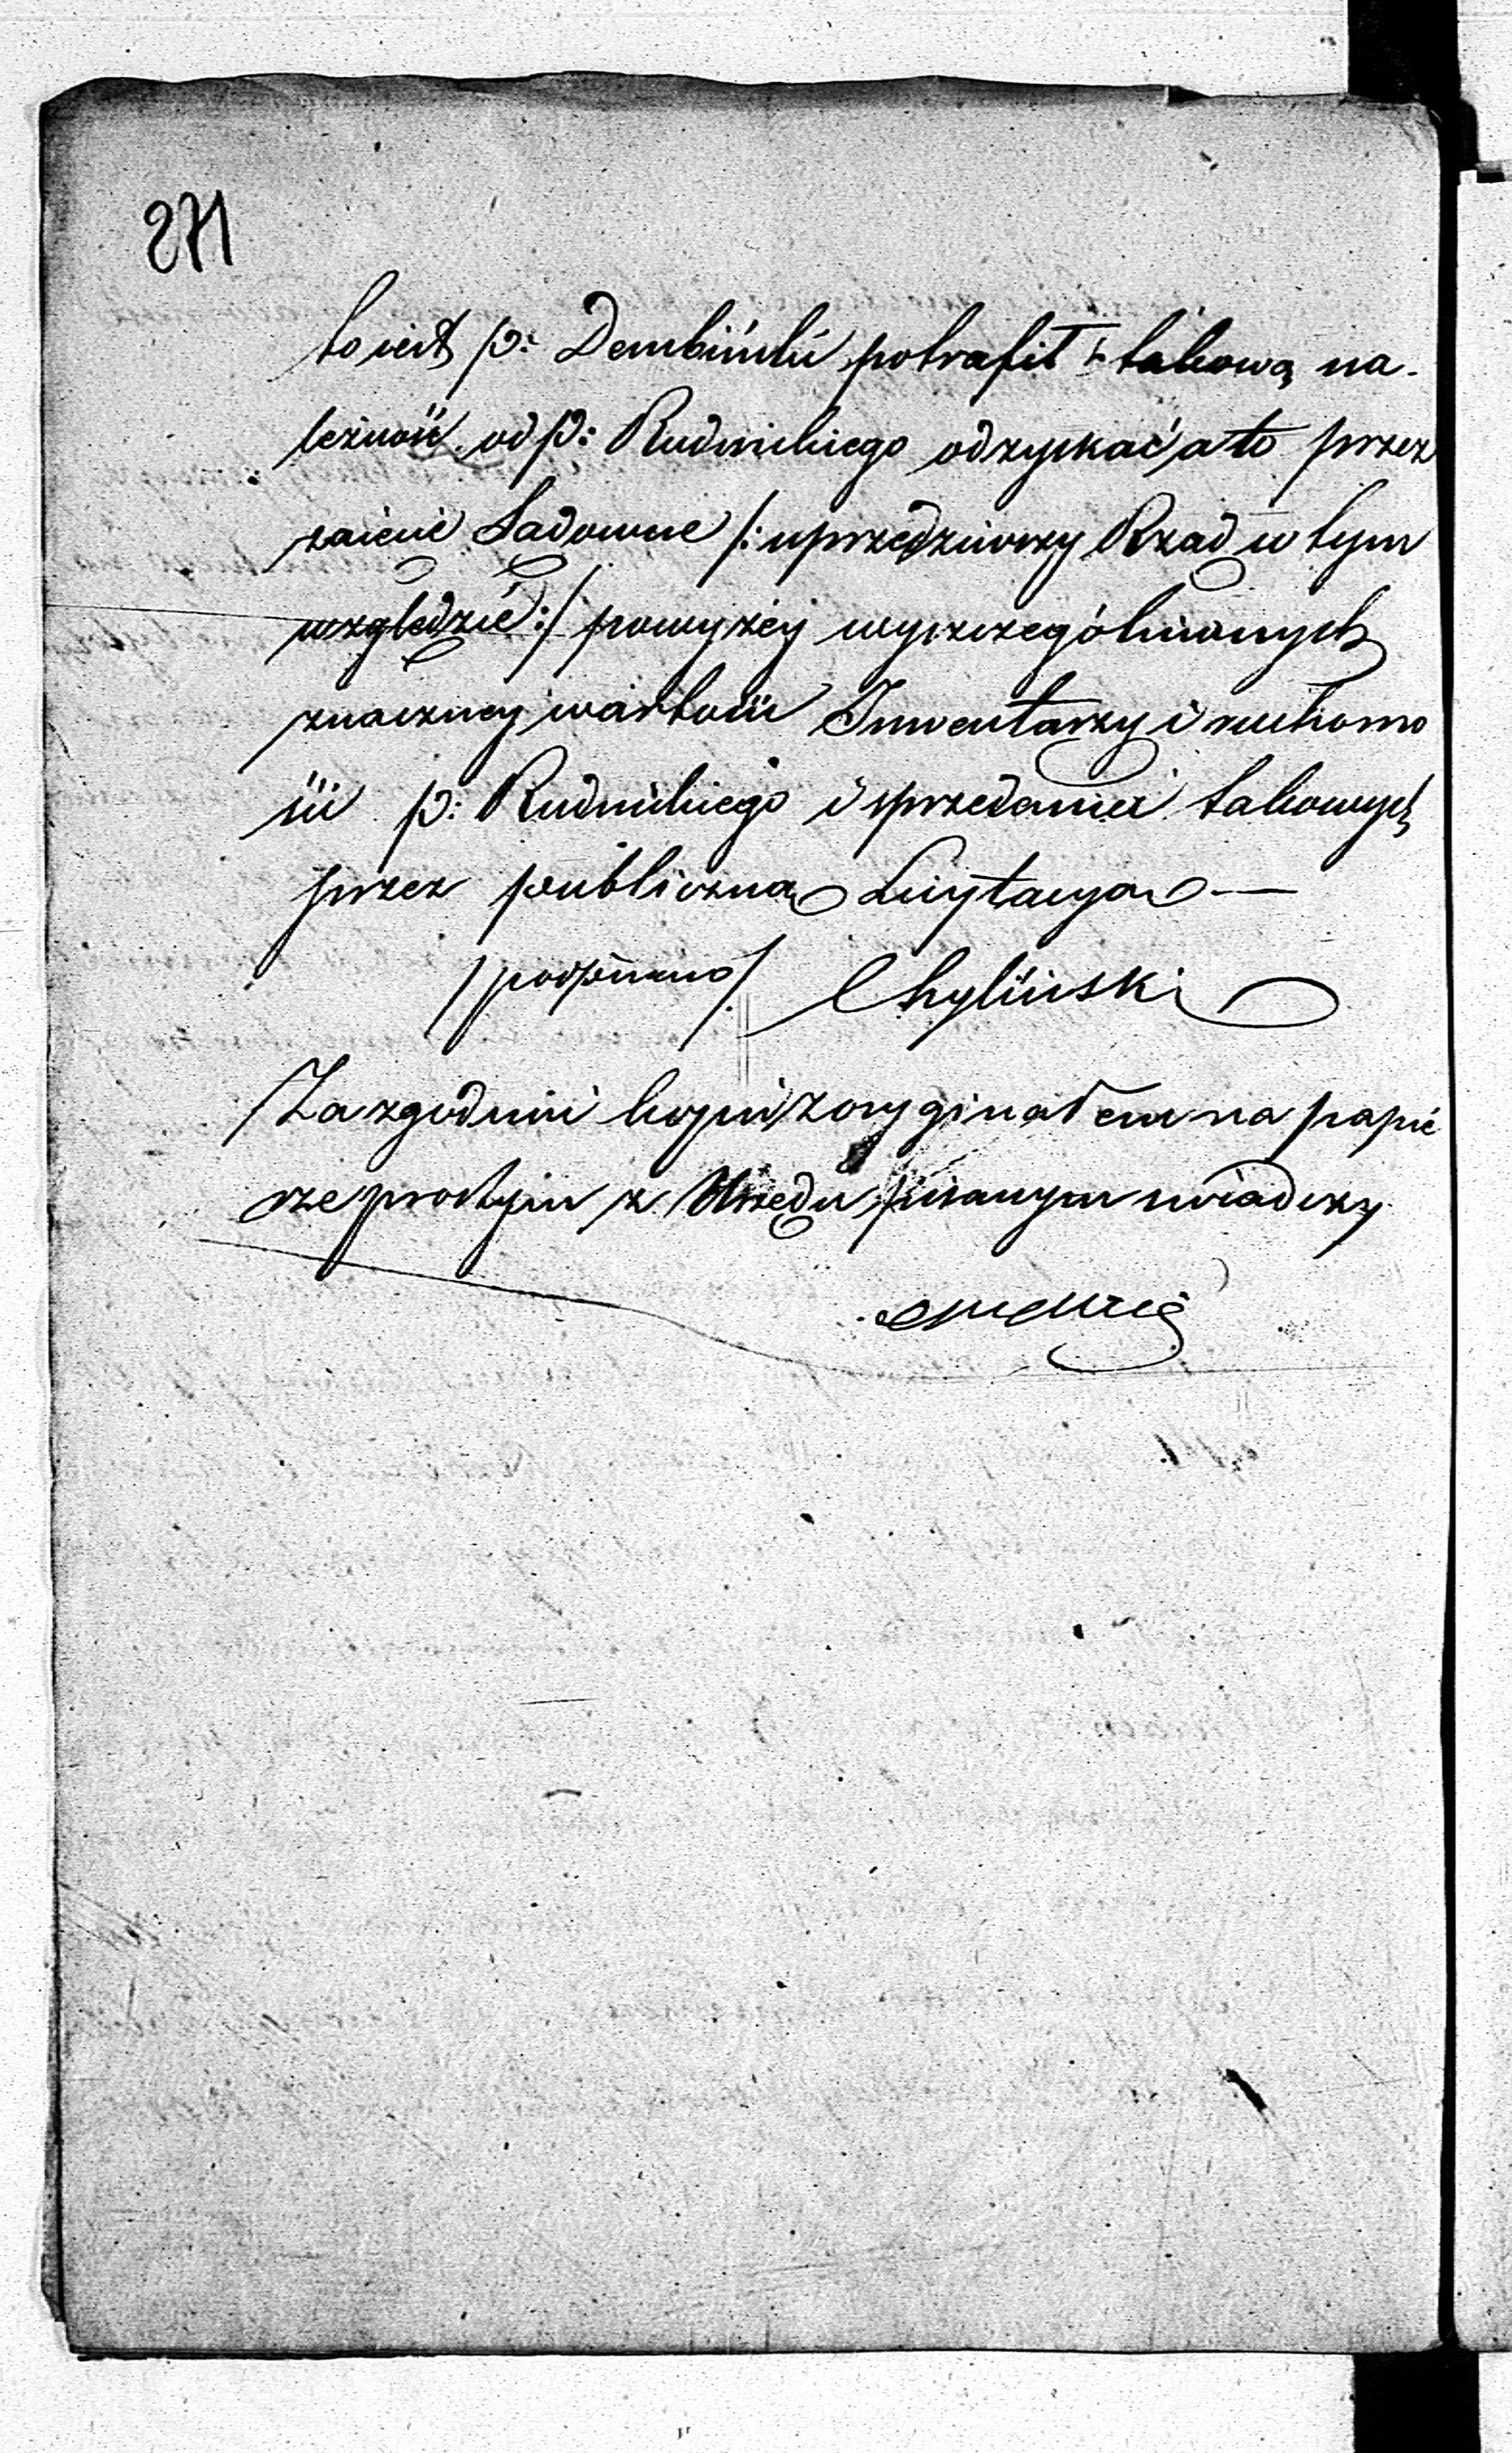 271
to iest p: Dembiński potrafił takową na-
leżność od p: Rudnickiego odzyskać a to przez
zaięcie Sądowne /: uprzedziwszy Rząd w tym
względzie :/ powyżey wyszczególnionych
znaczney wartości Inwentarzy i ruchomo
ści p: Rudnickiego i sprzedania takowych
przez publiczną Licytacyą —
/podpisano/. Chyliński
Za zgodność kopii z oryginałem na papie
rze prostym z Urzędu pisanym świadczy